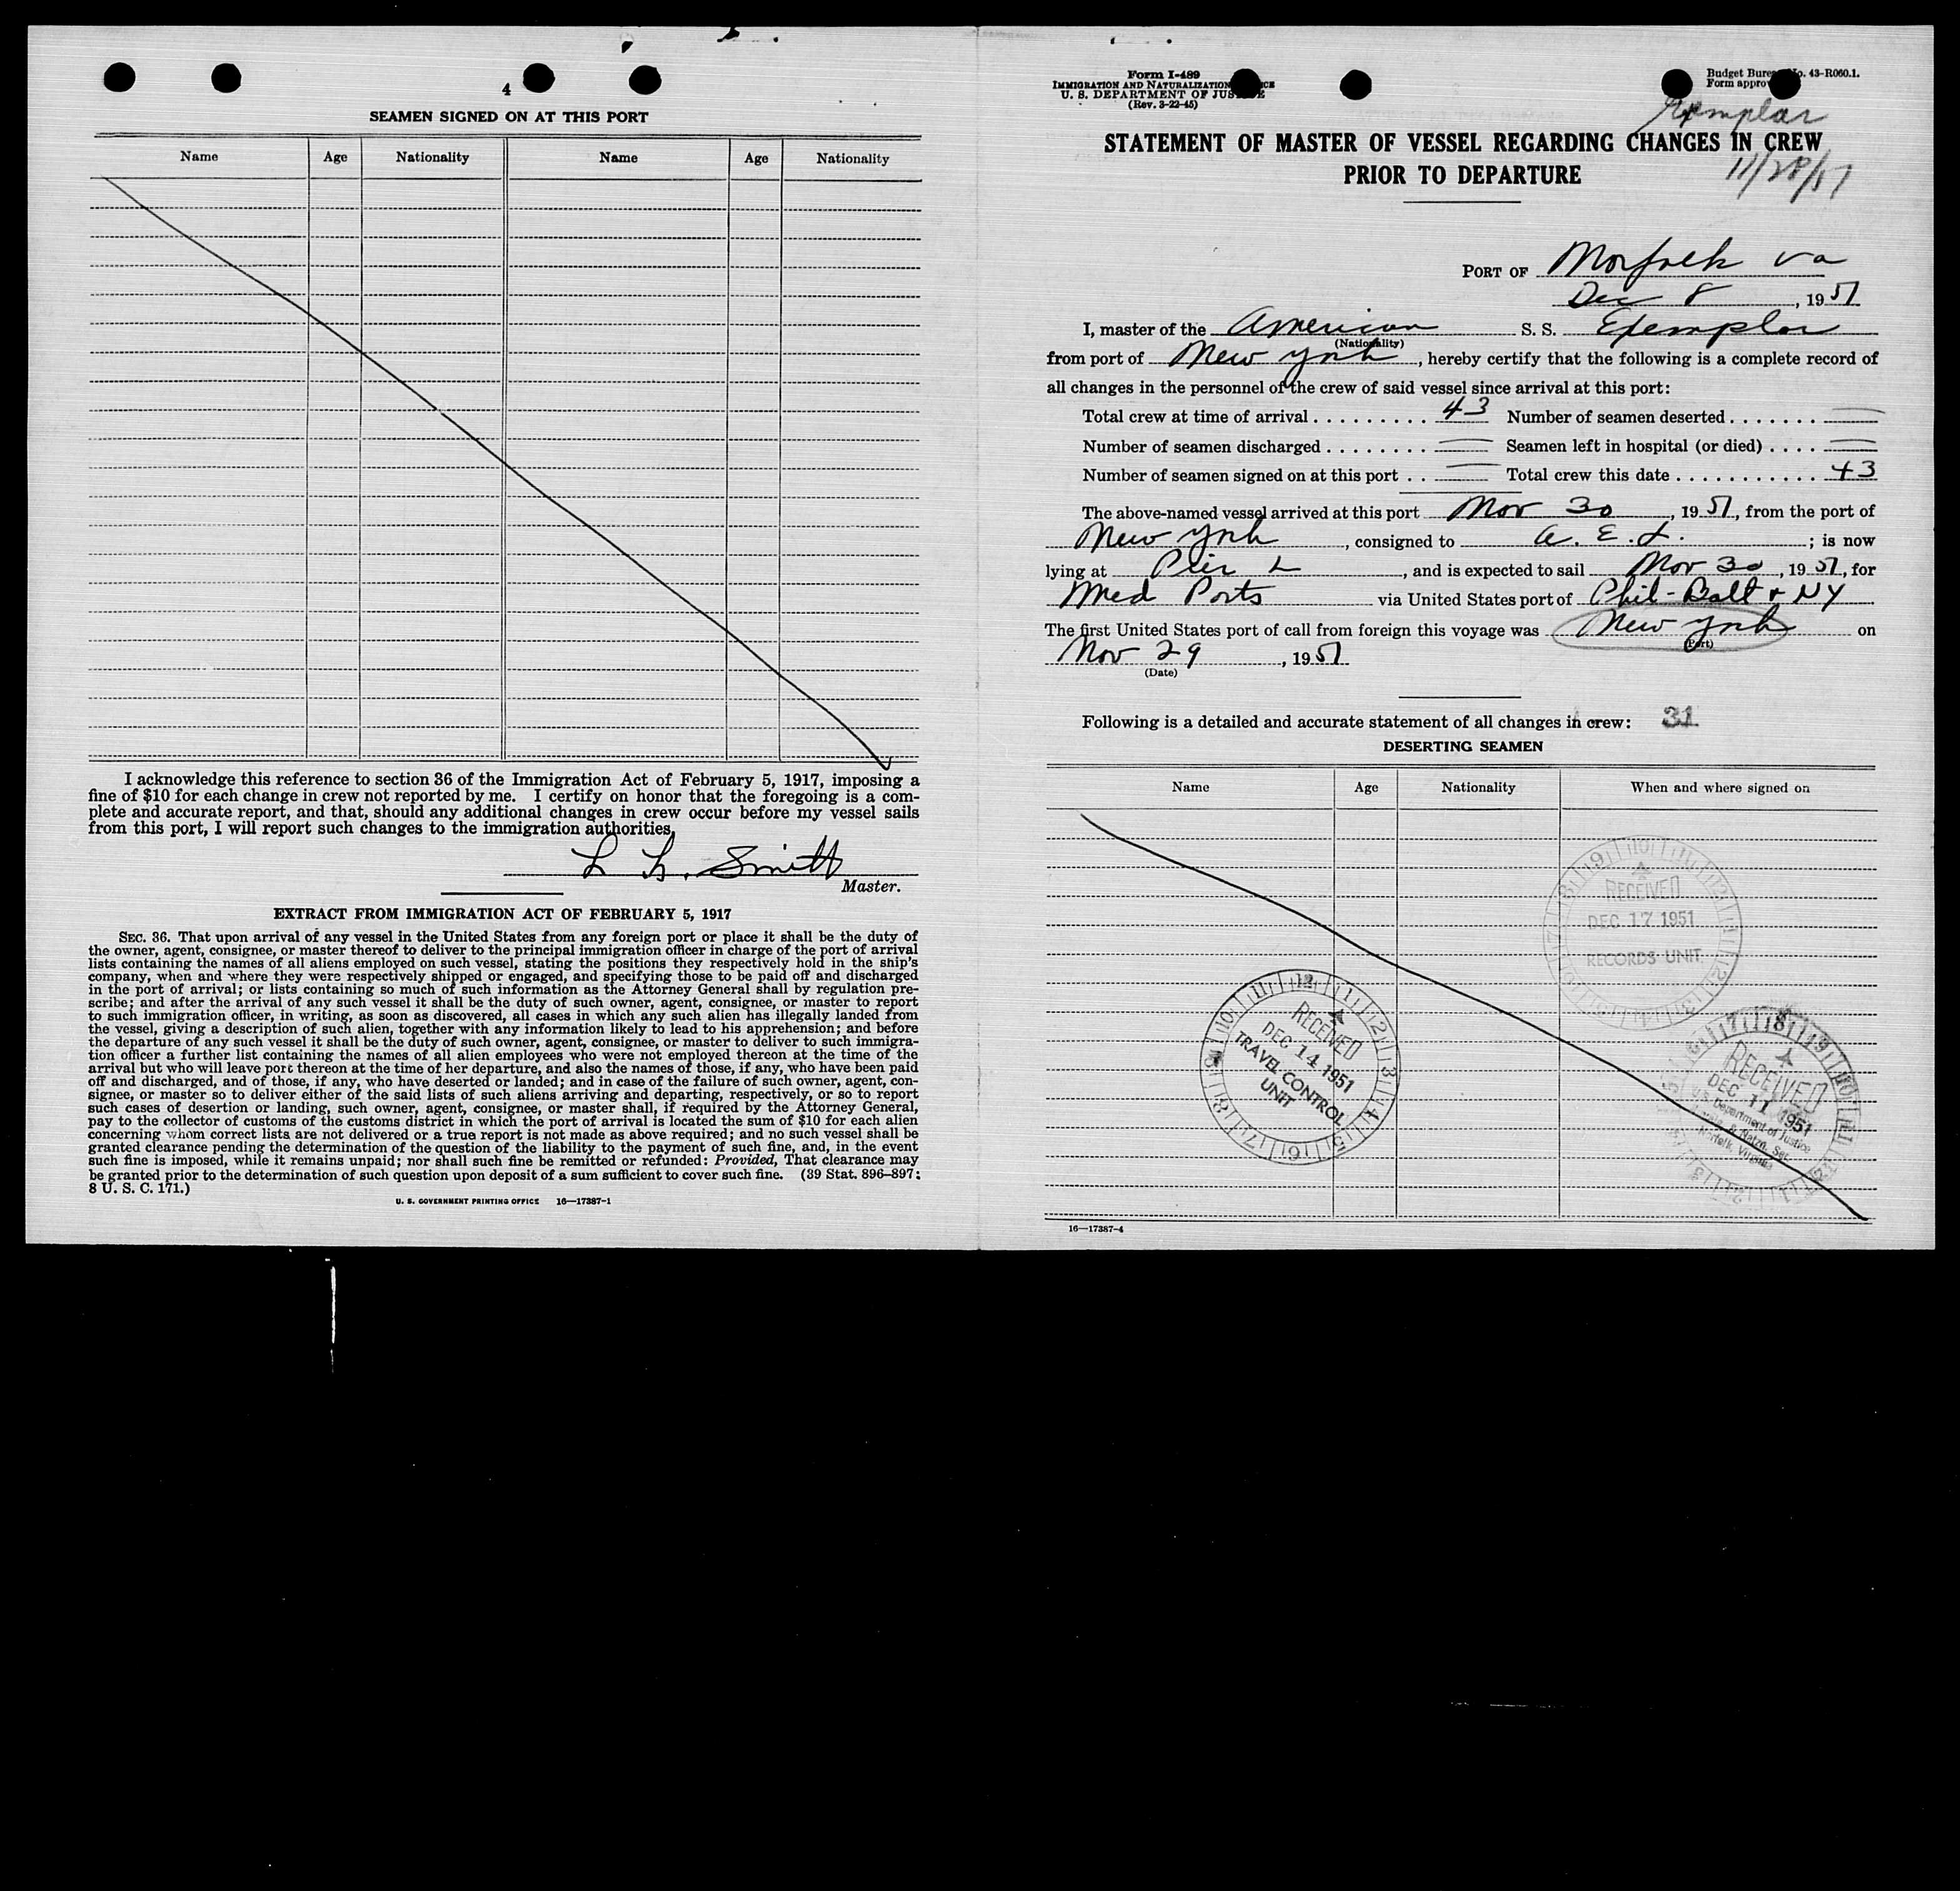 4
SEAMEN SIGNED ON AT THIS PORT
Name Age Nationality Name Age Nationality
I acknowledge this reference to section 36 of the Immigration Act of February 5, 1917, imposing a
fine of $10 for each change in crew not reported by me. I certify on honor that the foregoing is a com-
plete and accurate report, and that, should any additional changes in crew occur before my vessel sails
from this port, I will report such changes to the immigration authorities.
L Smith
Master.
EXTRACT FROM IMMIGRATION ACT OF FEBRUARY 5, 1917
SEC. 36. That upon arrival of any vessel in the United States from any foreign port or place it shall be the duty of
the owner, agent, consignee, or master thereof to deliver to the principal immigration officer in charge of the port of arrival
lists containing the names of all aliens employed on such vessel, stating the positions they respectively hold in the ship's
company, when and where they were respectively shipped or engaged, and specifying those to be paid off and discharged
in the port of arrival; or lists containing so much of such information as the Attorney General shall by regulation pre-
scribe; and after the arrival of any such vessel it shall be the duty of such owner, agent, consignee, or master to report
to such immigration officer, in writing, as soon as discovered, all cases in which any such alien has illegally landed from
the vessel, giving a description of such alien, together with any information likely to lead to his apprehension; and before
the departure of any such vessel it shall be the duty of such owner, agent, consignee, or master to deliver to such immigra-
tion officer a further list containing the names of all alien employees who were not employed thereon at the time of the
arrival but who will leave port thereon at the time of her departure, and also the names of those, if any, who have been paid
off and discharged, and of those, if any, who have deserted or landed; and in case of the failure of such owner, agent, con-
signee, or master so to deliver either of the said lists of such aliens arriving and departing, respectively, or so to report
such cases of desertion or landing, such owner, agent, consignee, or master shall, if required by the Attorney General,
pay to the collector of customs of the customs district in which the port of arrival is located the sum of $10 for each alien
concerning whom correct lists are not delivered or a true report is not made as above required; and no such vessel shall be
granted clearance pending the determination of the question of the liability to the payment of such fine, and, in the event
such fine is imposed, while it remains unpaid; nor shall such fine be remitted or refunded: Provided, That clearance may
be granted prior to the determination of such question upon deposit of a sum sufficient to cover such fine. (39 Stat. 896–897;
8 U. S. C. 171.)
U. S. GOVERNMENT PRINTING OFFICE 16—17387-1
Form I-489
IMMIGRATION AND NATURALIZATION
U. S. DEPARTMENT OF JUSTICE
(Rev. 3-22-45)
Budget Bureau No. 43-R060.1.
Form appro
Exemplar
11/28/51
STATEMENT OF MASTER OF VESSEL REGARDING CHANGES IN CREW
PRIOR TO DEPARTURE
PORT OF Norfolk Va
Dec 8, 1951
I, master of the American S. S. Exemplar
(Nationality)
from port of New York, hereby certify that the following is a complete record of
all changes in the personnel of the crew of said vessel since arrival at this port:
Total crew at time of arrival . . . . . . . . . 43 Number of seamen deserted . . . . . . .
Number of seamen discharged . . . . . . . . Seamen left in hospital (or died) . . . .
Number of seamen signed on at this port . . Total crew this date . . . . . . . . . . . 43
The above-named vessel arrived at this port Nov 30, 1951, from the port of
New York, consigned to A. E. L. ; is now
lying at Pier L, and is expected to sail Nov 30, 1951, for
Med Ports via United States port of Phil - Balt + NY
The first United States port of call from foreign this voyage was New York on
(Port)
Nov 29, 1951
(Date)
Following is a detailed and accurate statement of all changes in crew: 31
DESERTING SEAMEN
Name Age Nationality When and where signed on
RECEIVED
DEC 17 1951
RECORDS UNIT
RECEIVED
DEC 14 1951
TRAVEL CONTROL
UNIT
RECEIVED
DEC 11 1951
U.S. Department of Justice
& Natzn. Ser.
Norfolk, Virginia
16—17387-4